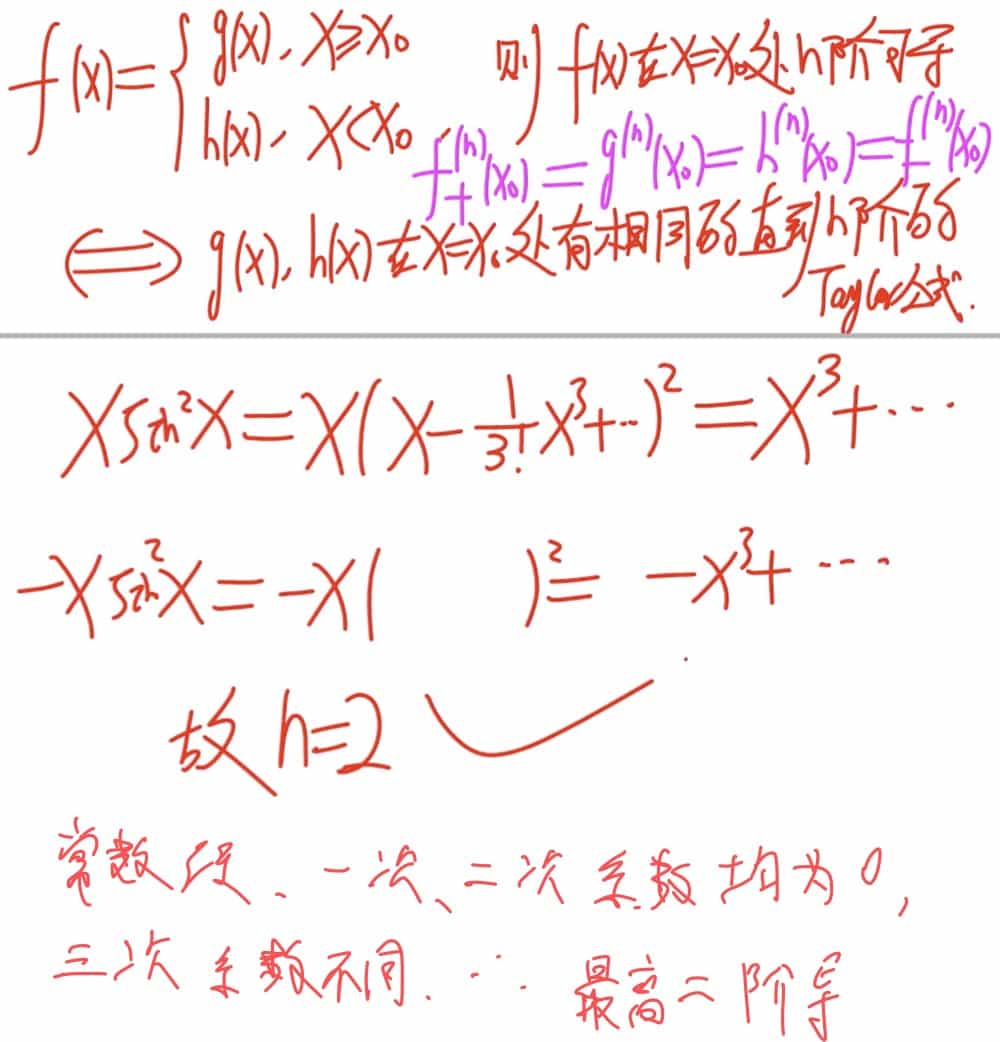 f(x)={g(x), x≥x₀ 则 f(x)在x=x₀处n阶可导
h(x), x<x₀.
f₊⁽ⁿ⁾(x₀)=g⁽ⁿ⁾(x₀)=h⁽ⁿ⁾(x₀)=f₋⁽ⁿ⁾(x₀)
⟺ g(x), h(x)在x=x₀处有相同的直到n阶的
Taylor公式.
xsin²x=x(x-1/3!x³+…)²=x³+…
-xsin²x=-x( )²=-x³+…
故 n=2
常数项、一次、二次系数均为0,
三次系数不同. ∴ 最高二阶导